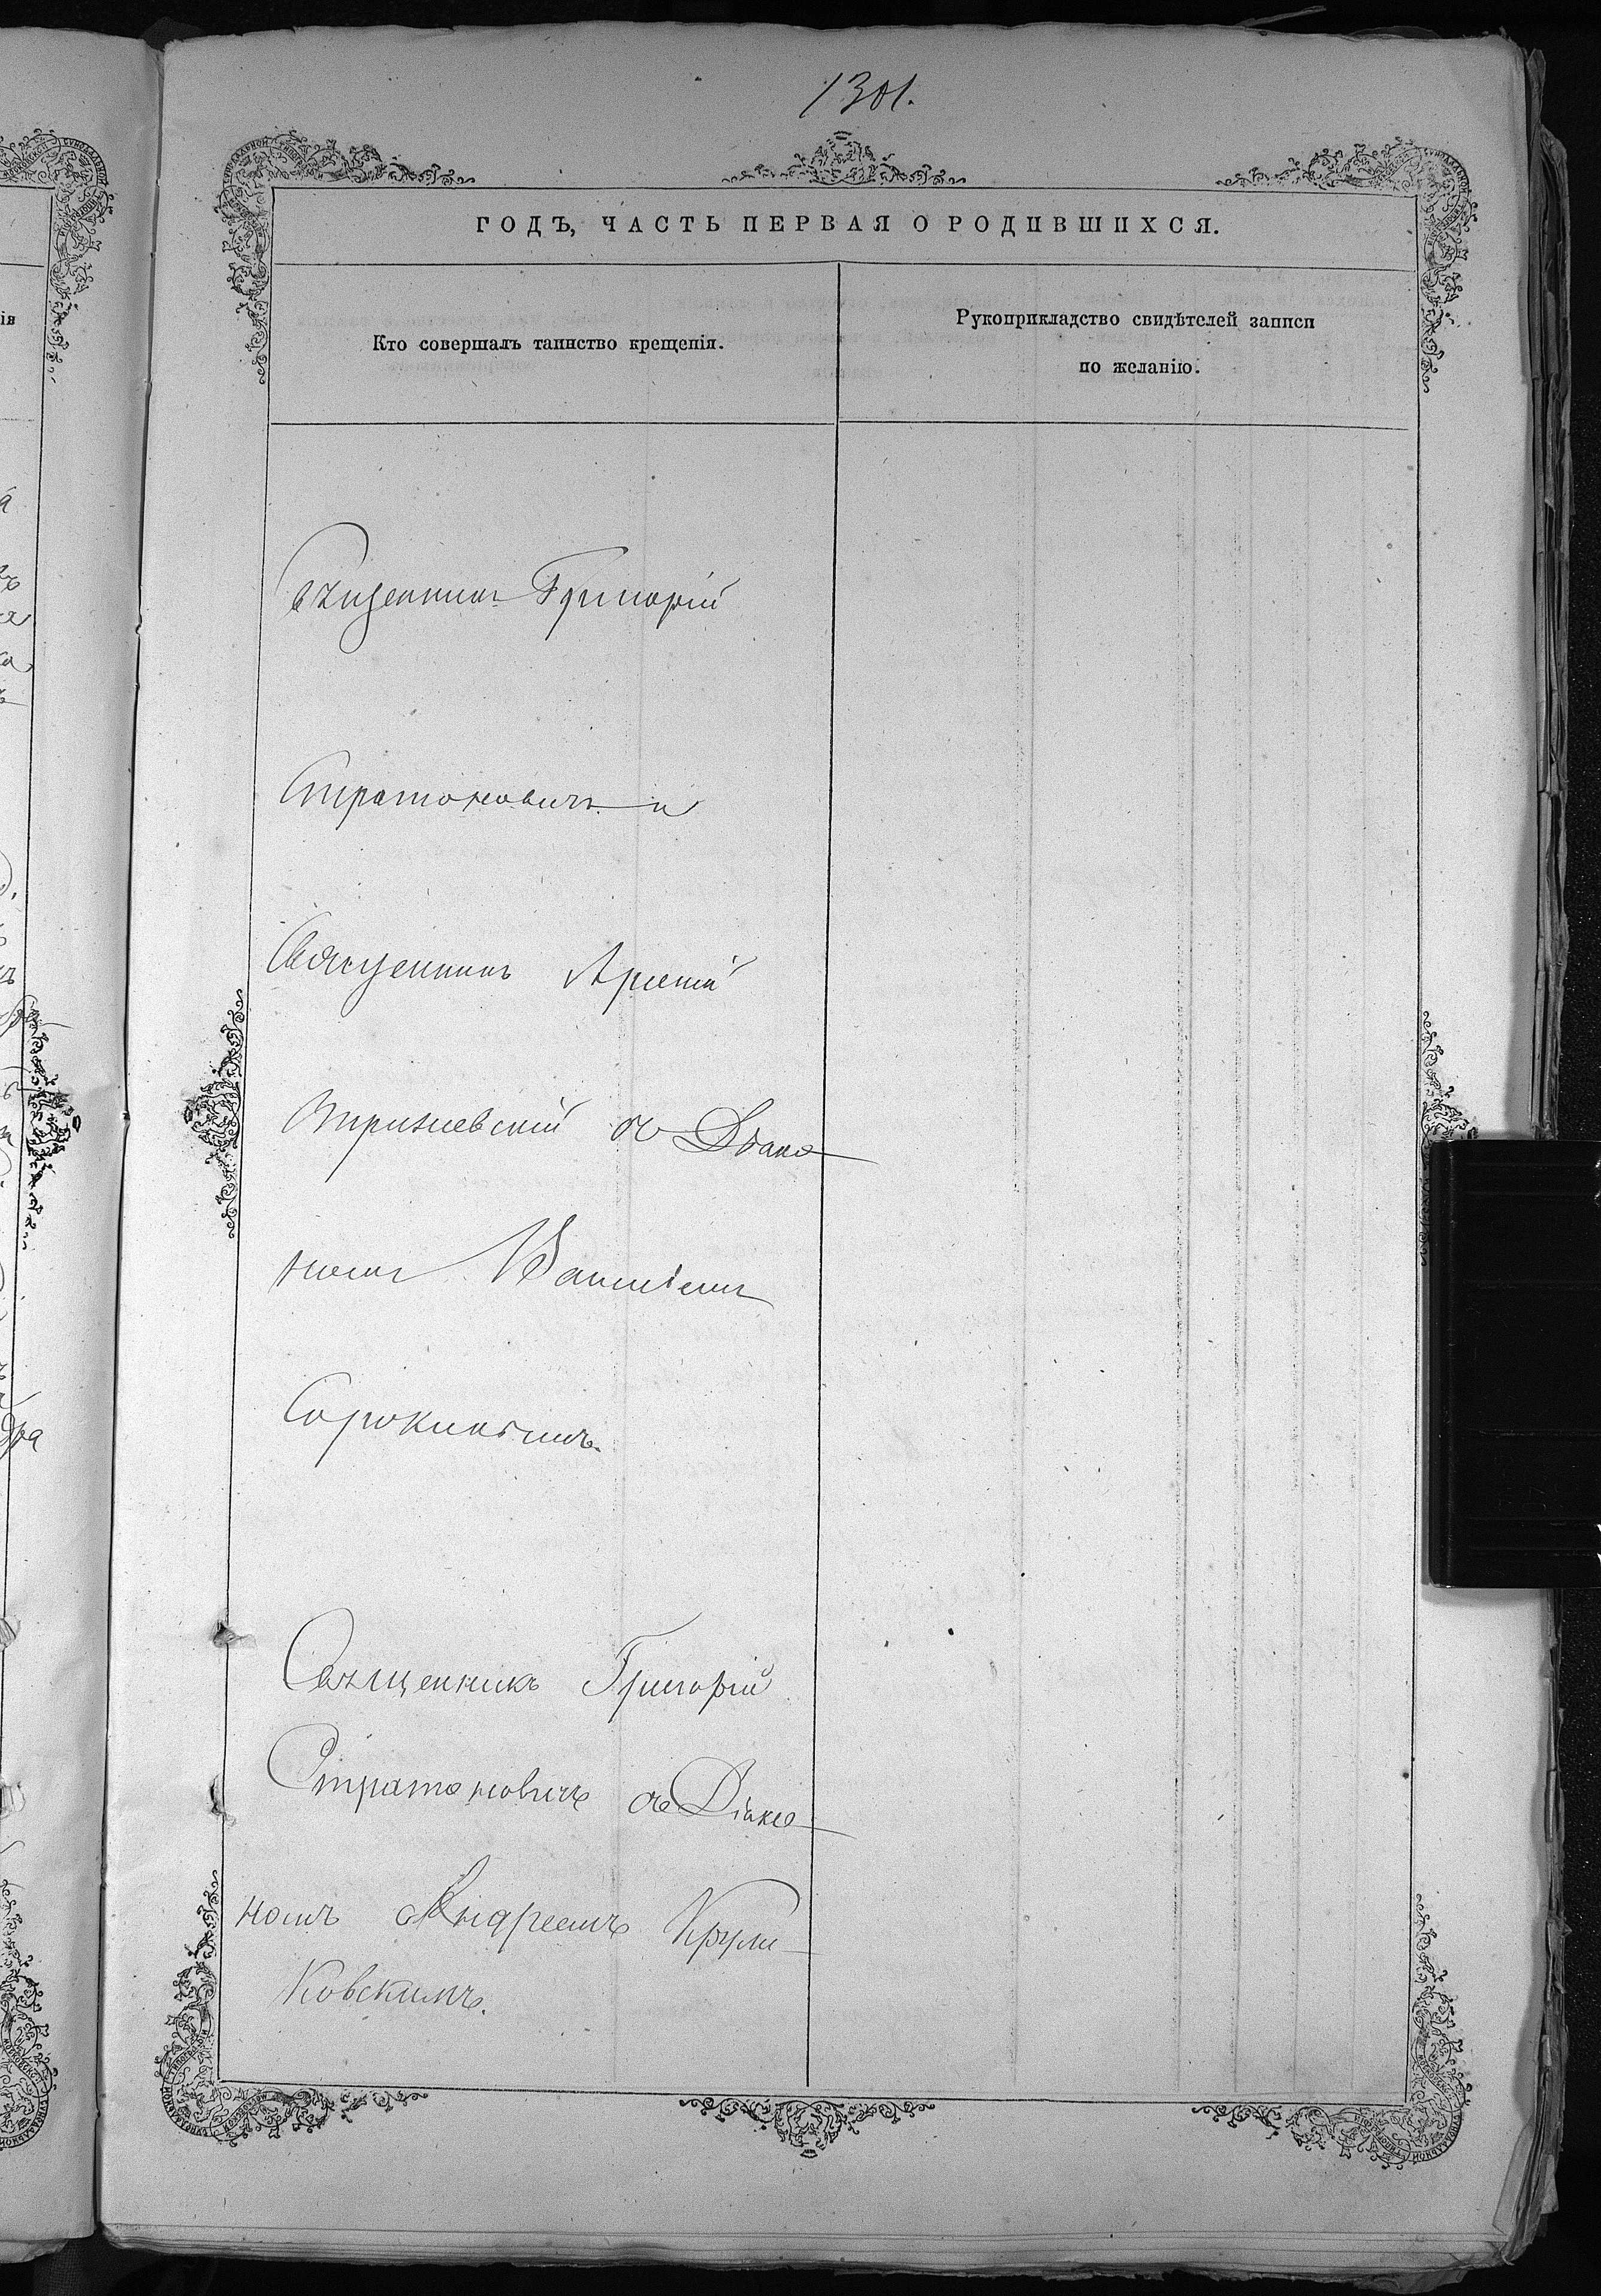 1301.
ГОДЪ, ЧАСТЬ ПЕРВАЯ О РОДИВШИХСЯ.
Кто совершалъ таинство крещенія.
Рукоприкладство свидѣтелей записи
по желанію.
Священникъ Григорій
Стратоновичъ и
Священникъ Арсеній
съ Діако
номъ Василіемъ
Сорокинымъ.
Священникъ Григорій
Стратоновичъ съ Діако
номъ Андреемъ Крули
ковскимъ.